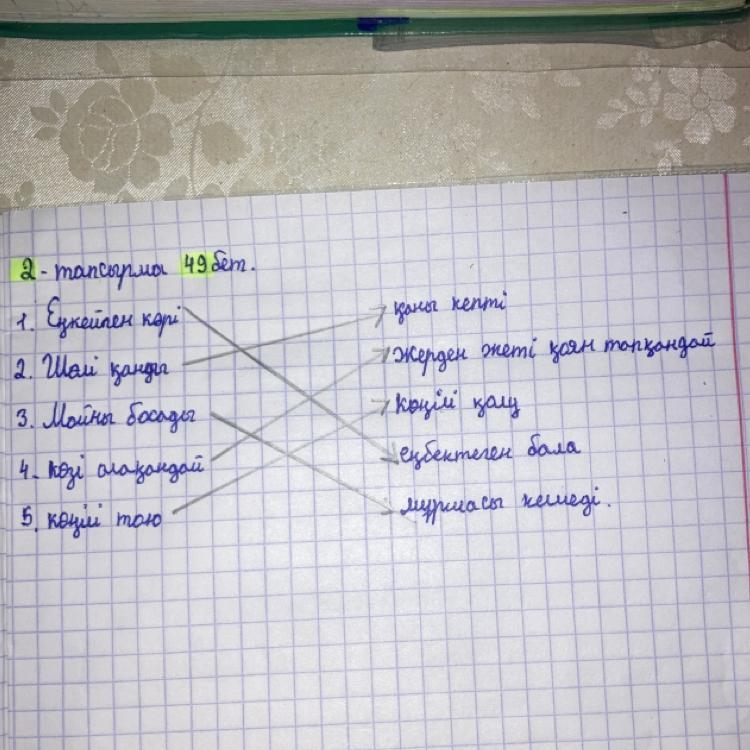 2 - тапсырма 49 бет.
1. Еңкейген кәрі
қаны кепті
2. Шөлі қанды
Жерден жеті қоян тапқандай
3. Мойны босады
Көңілі қалу
4. Көзі алақандай
еңбектеген бала
5. көңілі толю
мұрнасы келмеді.